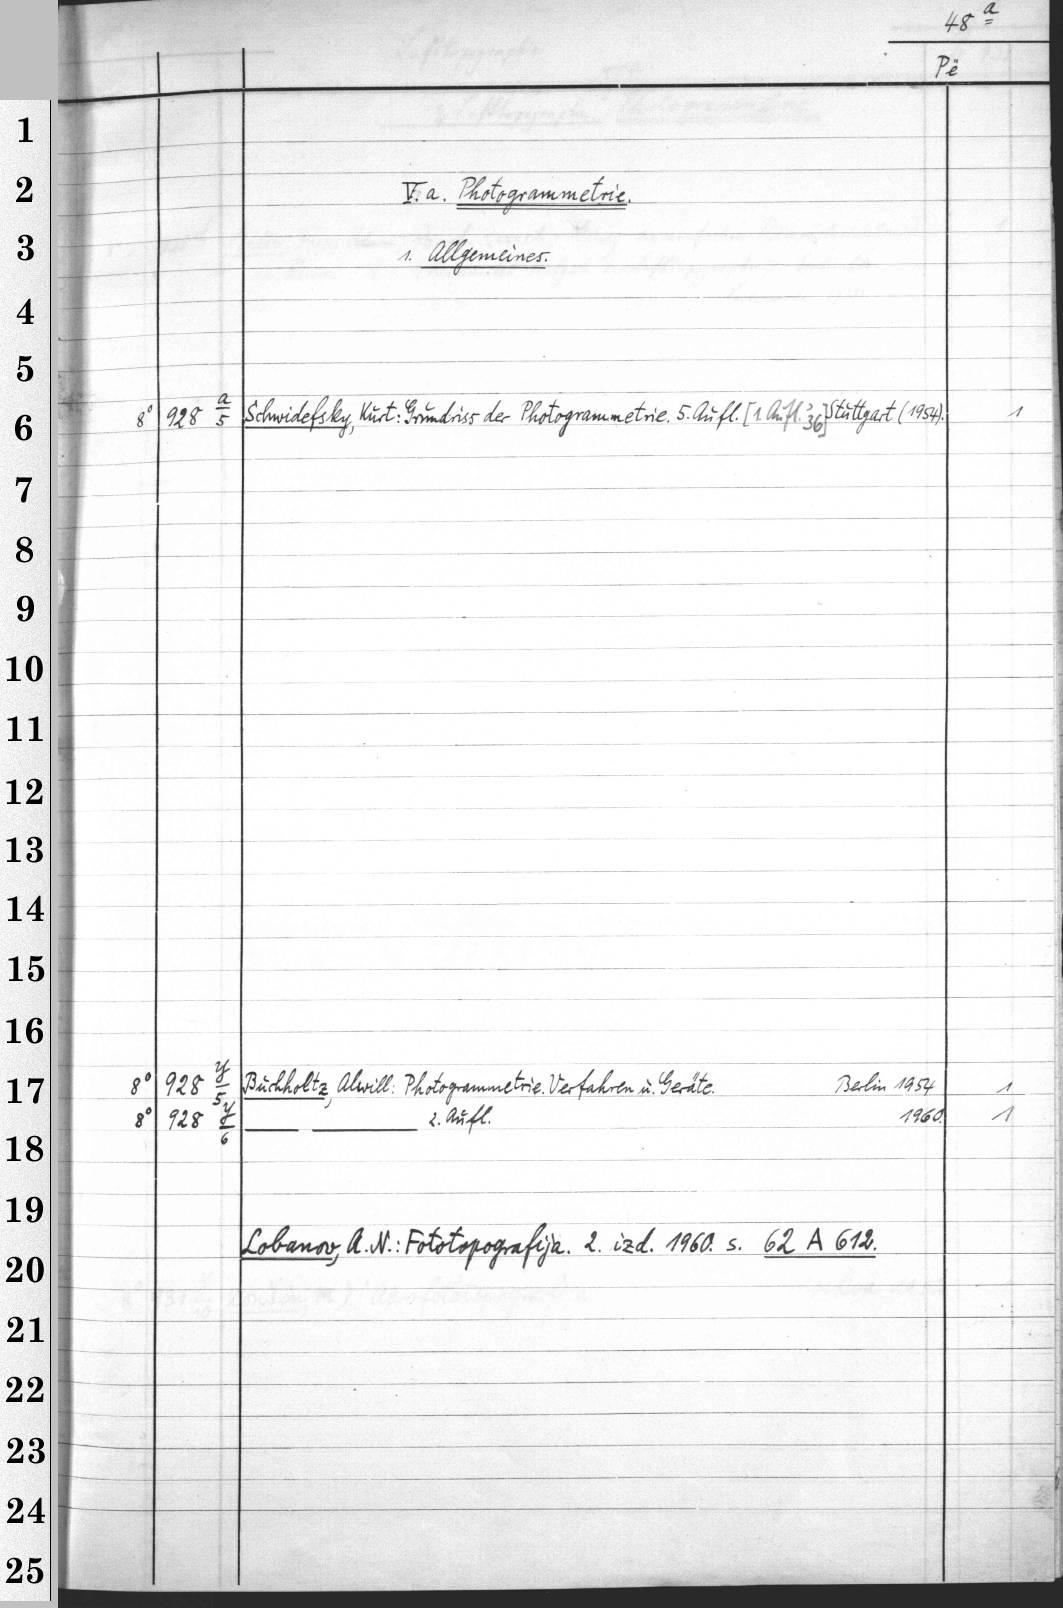 48 a
Pë
1
2 V. a. Photogrammetrie.
3 1. Allgemeines.
4
5
6 8° 928 a/5 Schwidefsky, Kurt: Grundriss der Photogrammetrie. 5. Aufl. [1. Aufl. '36] Stuttgart (1954). 1
7
8
9
10
11
12
13
14
15
16
17 8° 928 y/5 Buchholtz, Alwill: Photogrammetrie. Verfahren u. Geräte. Berlin 1954 1
8° 928 y/6 2. Aufl. 1960. 1
18
19
Lobanov, A. N.: Fototopografija. 2. izd. 1960. s. 62 A 612.
20
21
22
23
24
25